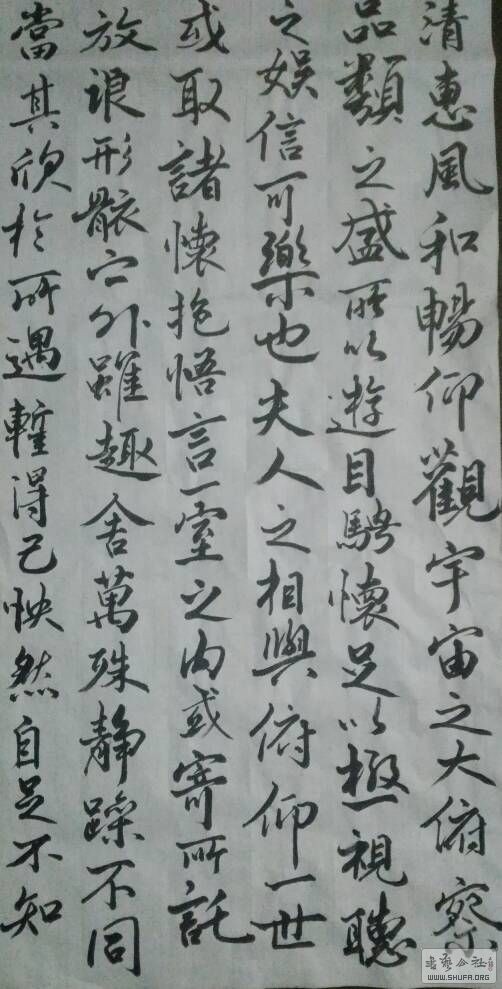 清惠風和暢仰觀宇宙之大俯察
品類之盛所以遊目騁懷足以極視聽
之娛信可樂也夫人之相與俯仰一世
或取諸懷抱悟言一室之內或寄所託
放浪形骸之外雖趣舍萬殊靜躁不同
當其欣於所遇暫得己怏然自足不知
WWW.SHUFA.ORG